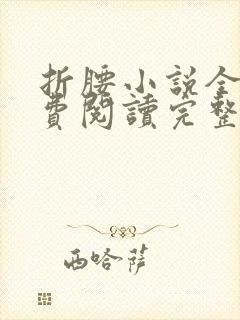 折腰小說全
費閱讀完整
西哈萨